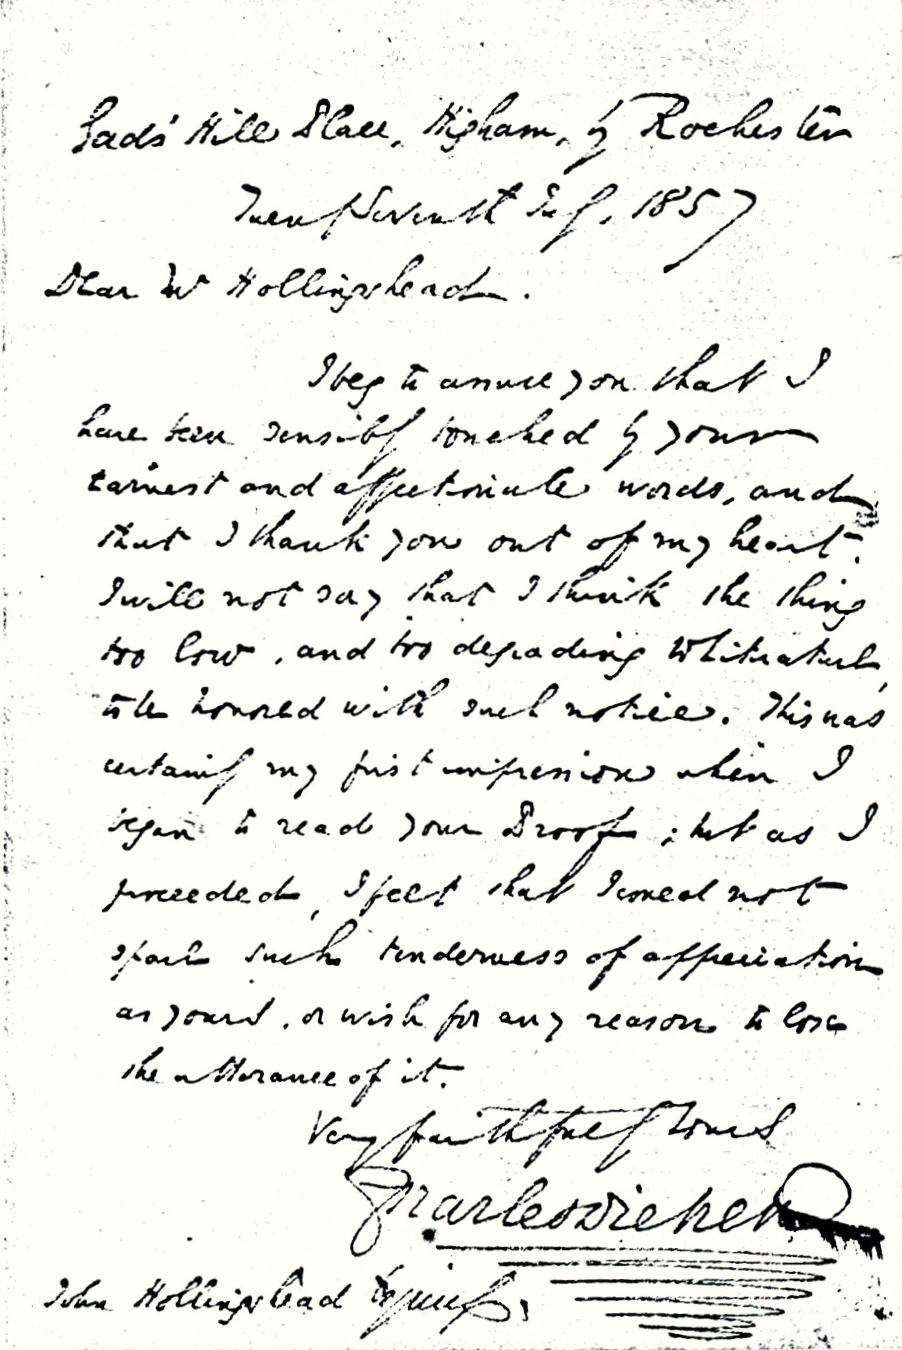 Gad's Hill Place, Higham, by Rochester
Twenty Seventh July, 1857
Dear Mr Hollingshead.
I beg to assure you that I
have been sensibly touched by your
earnest and affectionate words, and
that I thank you out of my heart.
I will not say that I think the thing
too low, and too degrading to literature,
to be honored with such notice. This was
certainly my first impression when I
began to read your Proof; but as I
proceeded, I felt that I could not
spare such tenderness of appreciation
as yours, or wish for any reason to lose
the utterance of it.
Very faithfully Yours
Charles Dickens
John Hollingshead Esquire,